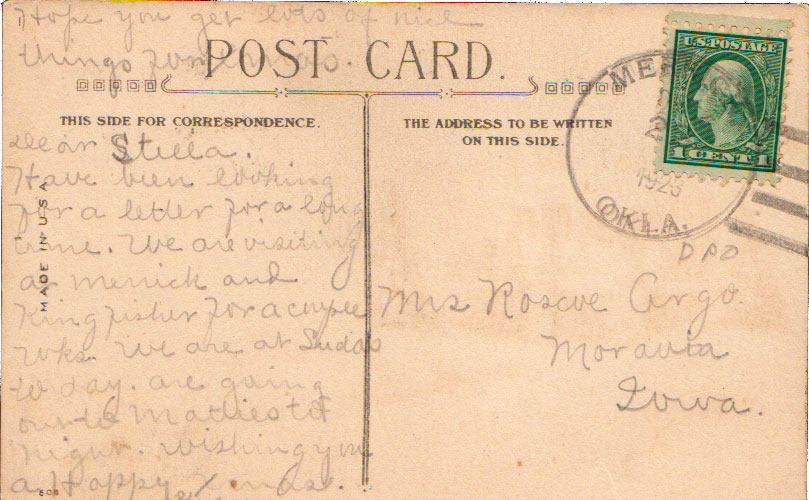 Hope you get lots of nice
things for Xmas.
POST CARD.
THIS SIDE FOR CORRESPONDENCE.
THE ADDRESS TO BE WRITTEN
ON THIS SIDE.
Dear Stella.
Have been looking
for a letter for a long
time. We are visiting
at Merrick and
Kingfisher for a couple
wks. We are at Suda's
to day. are going
out to Matties to
night. Wishing you
a Happy Xmas.
MADE IN U.S.A.
608
U.S. POSTAGE
1 CENT 1
1923
OKLA.
Mrs Roscoe Argo.
Moravia
Iowa.